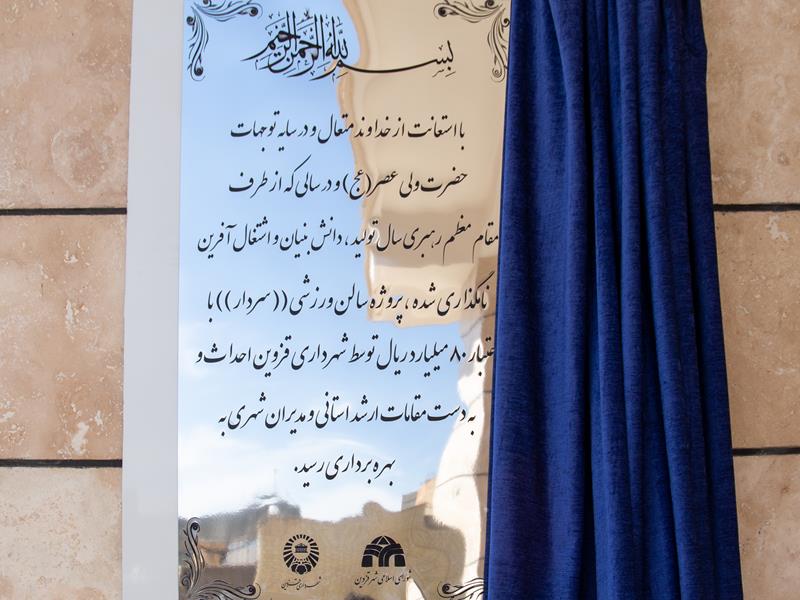 بسم الله الرحمن الرحیم
با استعانت از خداوند متعال و در سایه توجهات
حضرت ولی عصر (عج) و در سالی که از طرف
مقام معظم رهبری سال تولید ، دانش بنیان و اشتغال آفرین
نامگذاری شده ، پروژه سالن ورزشی ((سردار)) با
عتبار ۸۰ میلیارد ریال توسط شهرداری قزوین احداث و
به دست مقامات ارشد استانی و مدیران شهری به
بهره برداری رسید.
شورای اسلامی شهر قزوین
شهرداری قزوین